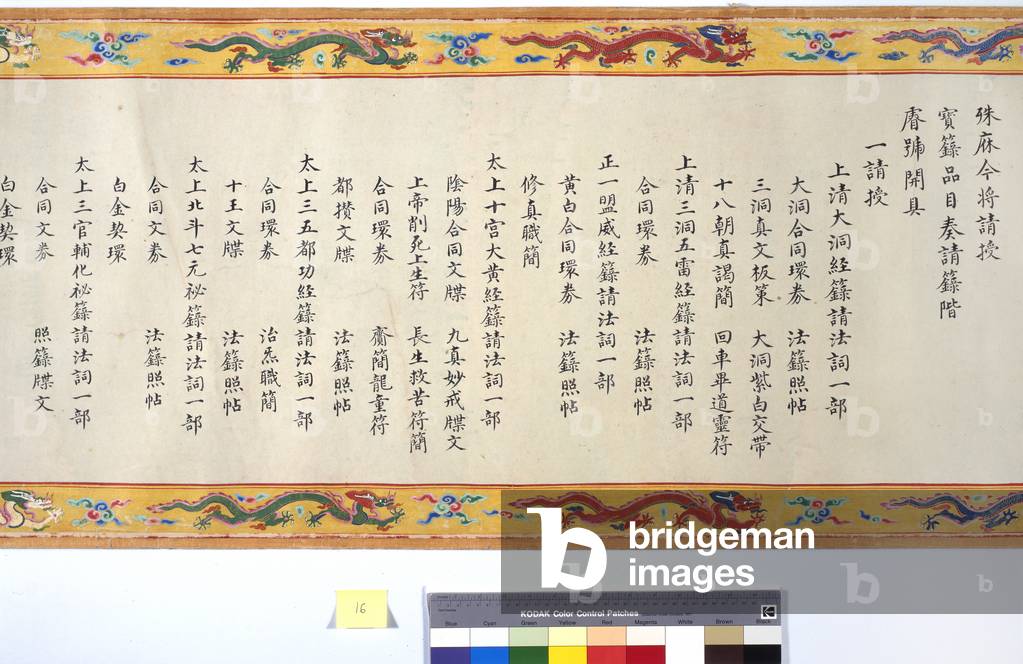 殊庥今將請授
寳籙品目奏請籙階
睿號開具
一請授
上清大洞経籙請法詞一部
大洞合同環券 法籙照帖
三洞真文板策 大洞紫白交帶
十八朝真謁簡 回車畢道靈符
上清三洞五雷経籙請法詞一部
合同環券 法籙照帖
正一盟威経籙請法詞一部
黄白合同環券 法籙照帖
修真職簡
太上十宫大黄経籙請法詞一部
隂陽合同文牒 九真妙戒牒文
上帝削死上生符 長生救苦符簡
合同環券 賫簡龍童符
都攢文牒 法籙照帖
太上三五都功経籙請法詞一部
合同環券 治炁職簡
十王文牒 法籙照帖
太上北斗七元祕籙請法詞一部
合同文券 法籙照帖
白金契環
太上三官輔化祕籙請法詞一部
合同文券 照籙牒文
白金契環
bridgeman
images
16
KODAK Color Control Patches
Blue Cyan Green Yellow Red Magenta White Brown Black
Kodak